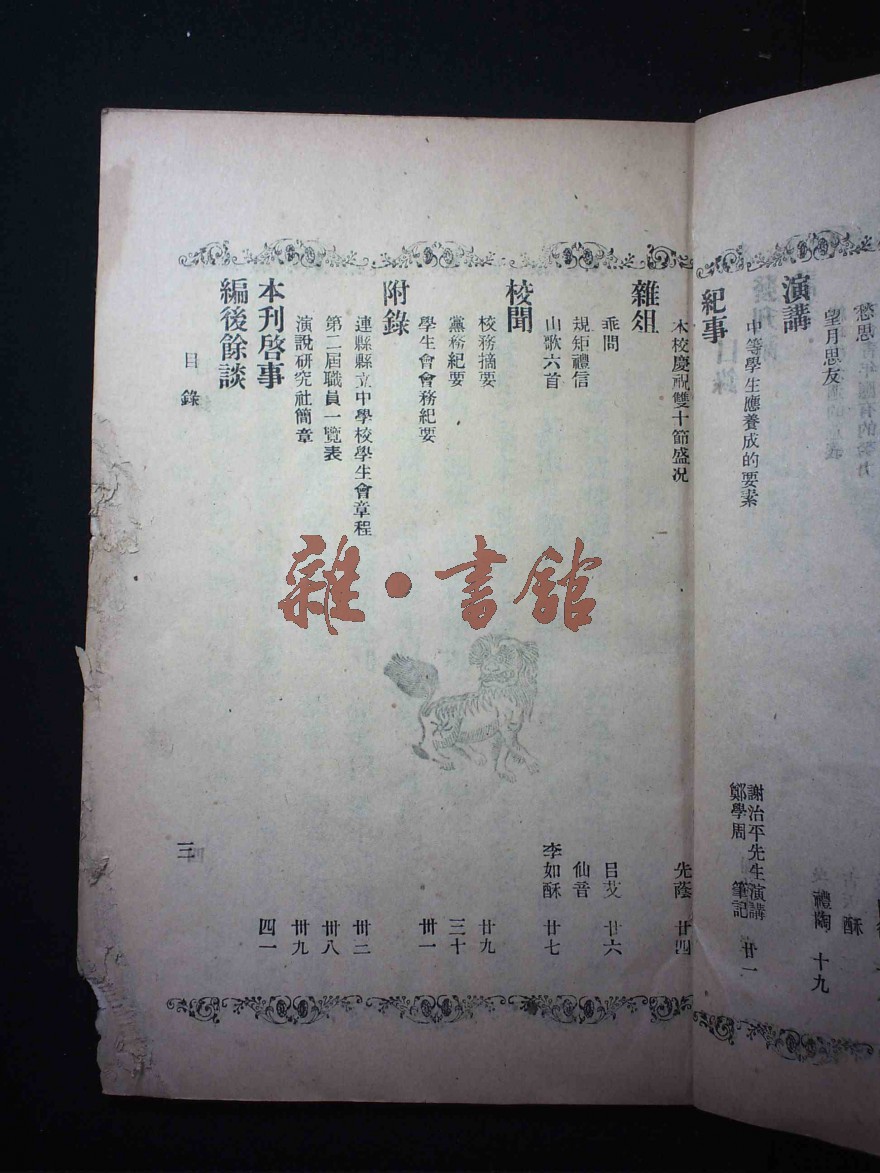 望月思友 禮陶 十九
演講
中等學生應養成的要素 謝治平先生演講 鄭學周 筆記 廿一
紀事
本校慶祝雙十節盛况 先蔭 廿四
雜俎
乖問 呂艾 廿六
規矩禮信 仙音
山歌六首 李如酥 廿七
校聞
校務摘要 廿九
黨務紀要 三十
學生會會務紀要 卅一
附錄
連縣縣立中學校學生會章程 卅二
第二屆職員一覽表 卅八
演説研究社簡章 卅九
本刊啓事 四一
編後餘談
目錄 三
雜·書館